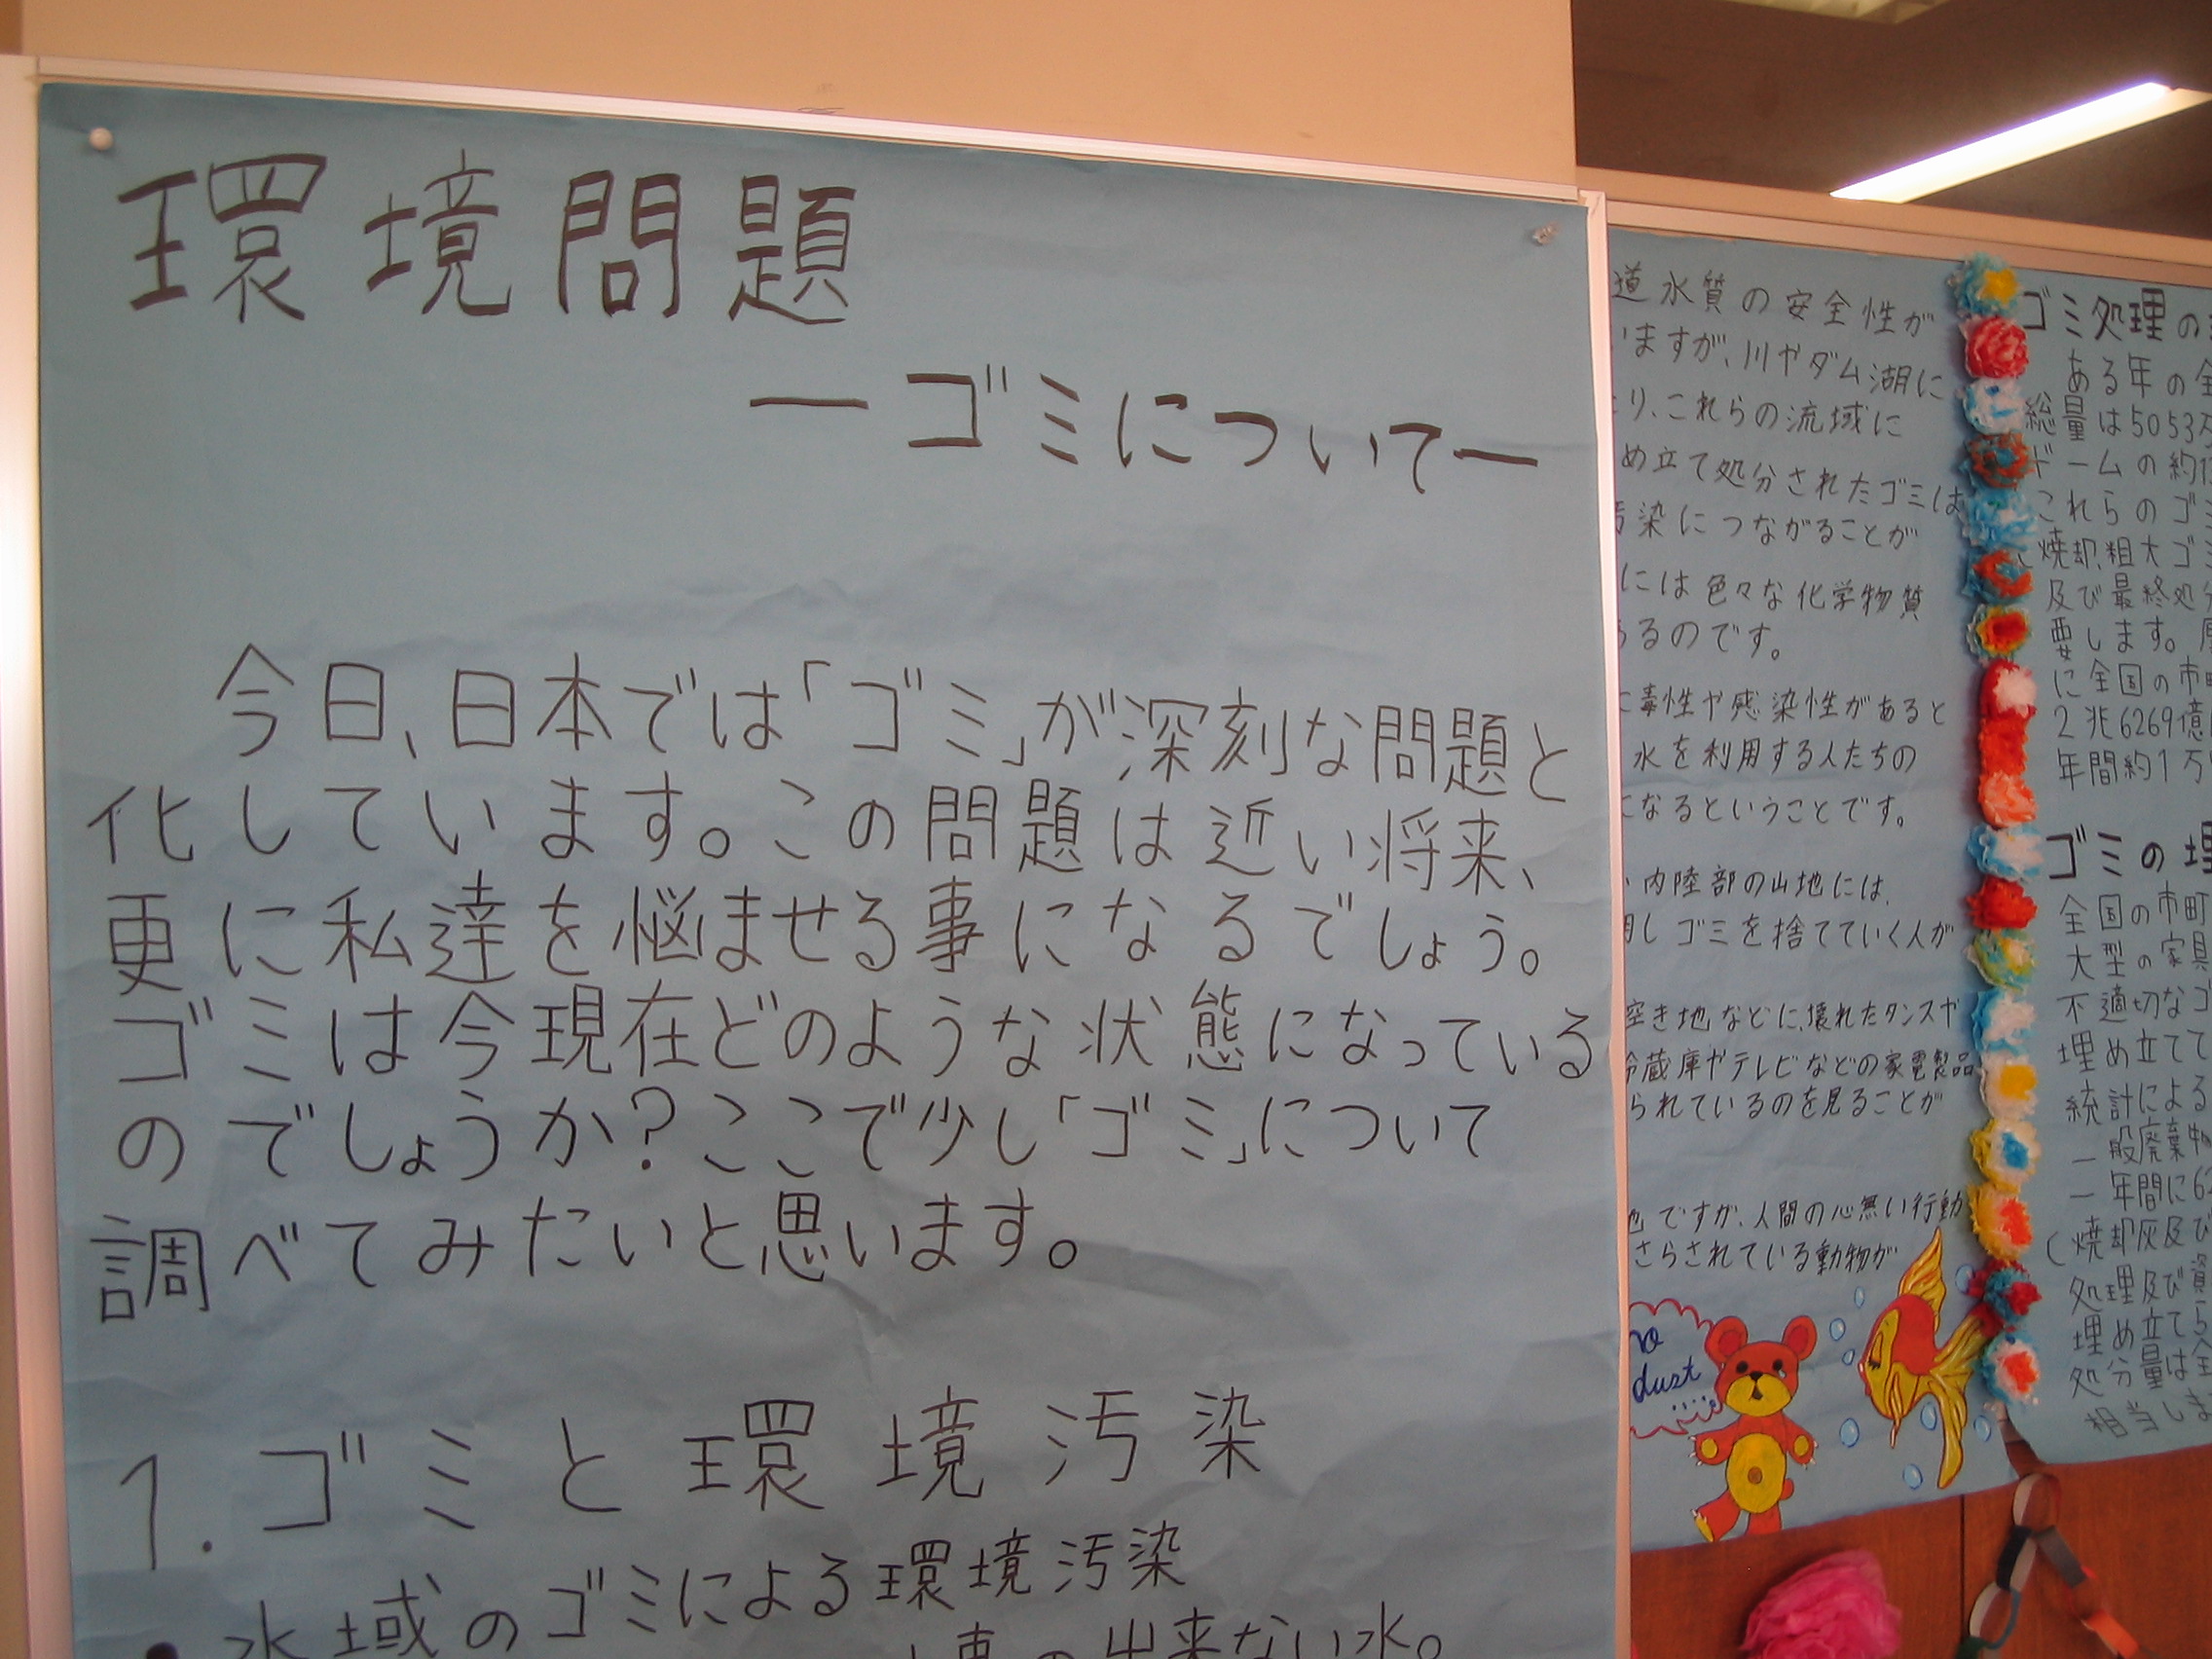 環境問題
―ゴミについて―
今日、日本では「ゴミ」が深刻な問題と
化しています。この問題は近い将来、
更に私達を悩ませる事になるでしょう。
ゴミは今現在どのような状態になっている
のでしょうか?ここで少し「ゴミ」について
調べてみたいと思います。
1. ゴミと環境汚染
水域のゴミによる環境汚染
出来ない水。
道水質の安全性が
いますが、川やダム湖に
り、これらの流域に
め立て処分されたゴミは
汚染につながることが
には色々な化学物質
あるのです。
に毒性や感染性があると
水を利用する人たちの
になるということです。
内陸部の山地には、
用しゴミを捨てていく人が
空き地などに、壊れたタンスや
冷蔵庫やテレビなどの家電製品
られているのを見ることが
ですが、人間の心無い行動
さらされている動物が
no
dust
.....
ゴミ処理の
ある年の全
総量は5053万
ドームの約
これらのゴミ
焼却、粗大ゴミ
及び最終処分
要します。
に全国の市町
2兆6269億
年間約1万
ゴミの埋
全国の市町
大型の家具
不適切なゴ
埋め立てて
統計による
一般廃棄物
一年間に62
(焼却灰及び
処理及び資
埋め立てら
処分量は全
相当しま